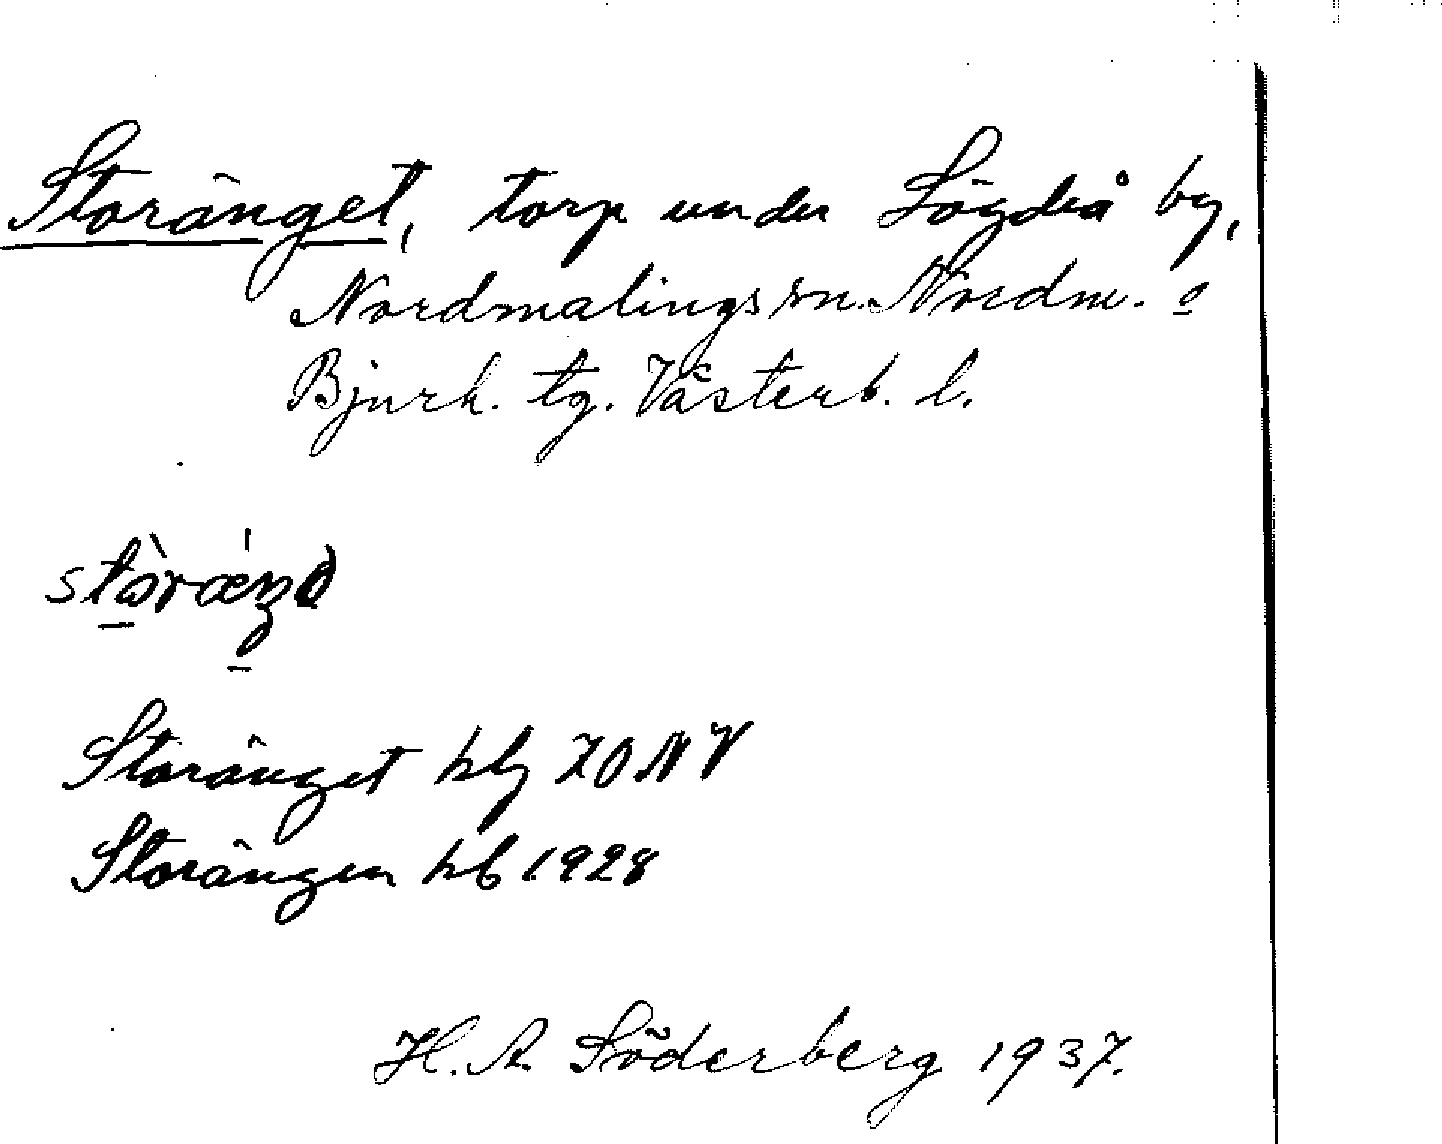 Storänget, torp under Lögdeå by,
Nordmalings sn. Nordm. o
Bjurh. tg. Västerb. l.
Storänget hbg 70 NV
Storängen hb 1928
H. A. Söderberg 1937.